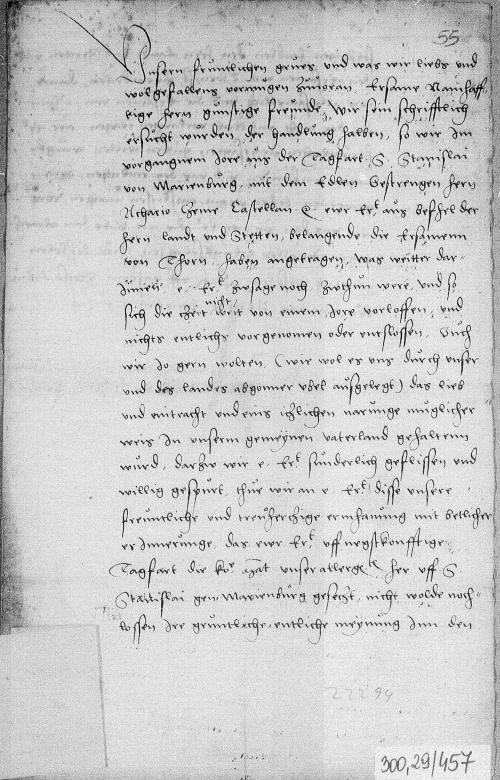 55
Unsern freuntlichen grues und was wir liebs und
wolgefallens vormugen zuvoran. Ersame Namhaff-
tige hern gunstige freunde, wir sein schrifftlich
ersucht wurden, der handlung halben, so wir im
vorgangnem Jore aus der Tagfart S. Stanislai
von Marienburg, mit dem Edlen Gestrengen hern
Achacio Czeme Castellan &c ewr Er: aus befehl der
hern landt und Stetten, belangende die Ersamenn
von Thorn, haben angetragen, was weitter dar-
Innen, e. Er: zwsage noch zwthun were, und so
nicht
sich die czeit weit von einem Jore vorloffen, und
nichts entlichs vorgenomen oder entslossen. Auch
wir so gern wolten, (wie wol es uns durch unser
und des landes abgonner vbel ausgelegt) das lieb
und eintracht und eins itzlichen narunge muglicher
weis In unserm gemeynen vaterland gehaltenn
wurd, darzw wir e. Er: sunderlich geflissen und
willig gespurt, thue wir an e. Er: disse unsere
freuntliche und treuhertzige ermhanung mit betlicher
erInnerunge, das ewr Er: uff negstkonfftige
Tagfart die ko: Mat unser allerge: her uff S
Stanislai gen Marienburg gesetzt, nicht wolde noch-
lossen Ire gruntliche entliche meynung Inn den
22294
300,29/457